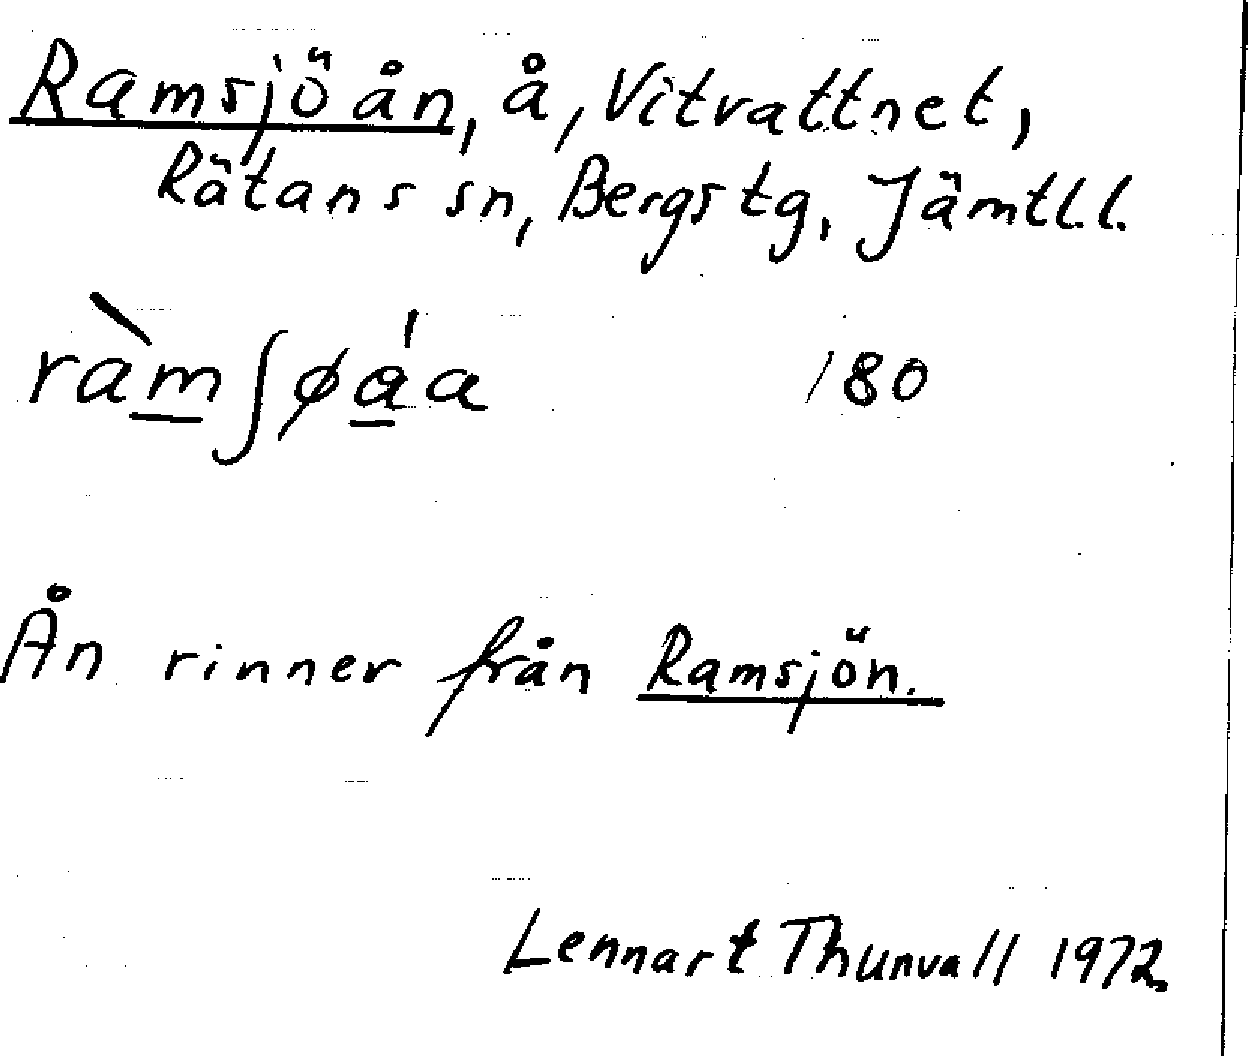 Ramsjöån, å, Vitvattnet,
Rätans sn, Bergs tg, Jämtl.l.
ràm̲ʃøǻ̲a 180
Ån rinner från Ramsjön.
Lennart Thunvall 1972.